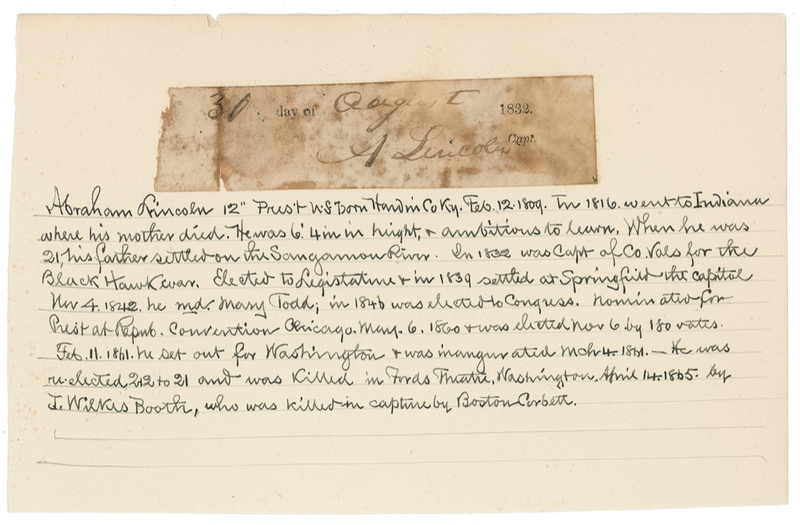 30 day of August 1832.
A Lincoln Capt.
Abraham Lincoln 12" Pres't U.S. born Hardin Co Ky. Feb. 12. 1809. In 1816. went to Indiana
where his mother died. He was 6' 4 in in hight, & ambitious to learn. When he was
21, his father settled on the Sangamon River. In 1832 was Capt of Co. Vols for the
Black Hawk war. Elected to Legistature & in 1839 settled at Springfield the capital
Nov 4. 1842. he md. Mary Todd; in 1846 was elected to Congress. nominated for
Prest at Repub. Convention Chicago. May. 6. 1860 & was elected Nov 6 by 180 votes.
Feb. 11. 1861. he set out for Washington & was inaugurated Mch 4. 1861. — He was
re-elected 212 to 21 and was killed in Fords Theatre, Washington. April 14. 1865. by
J. Wilkes Booth, who was killed in capture by Boston Corbett.